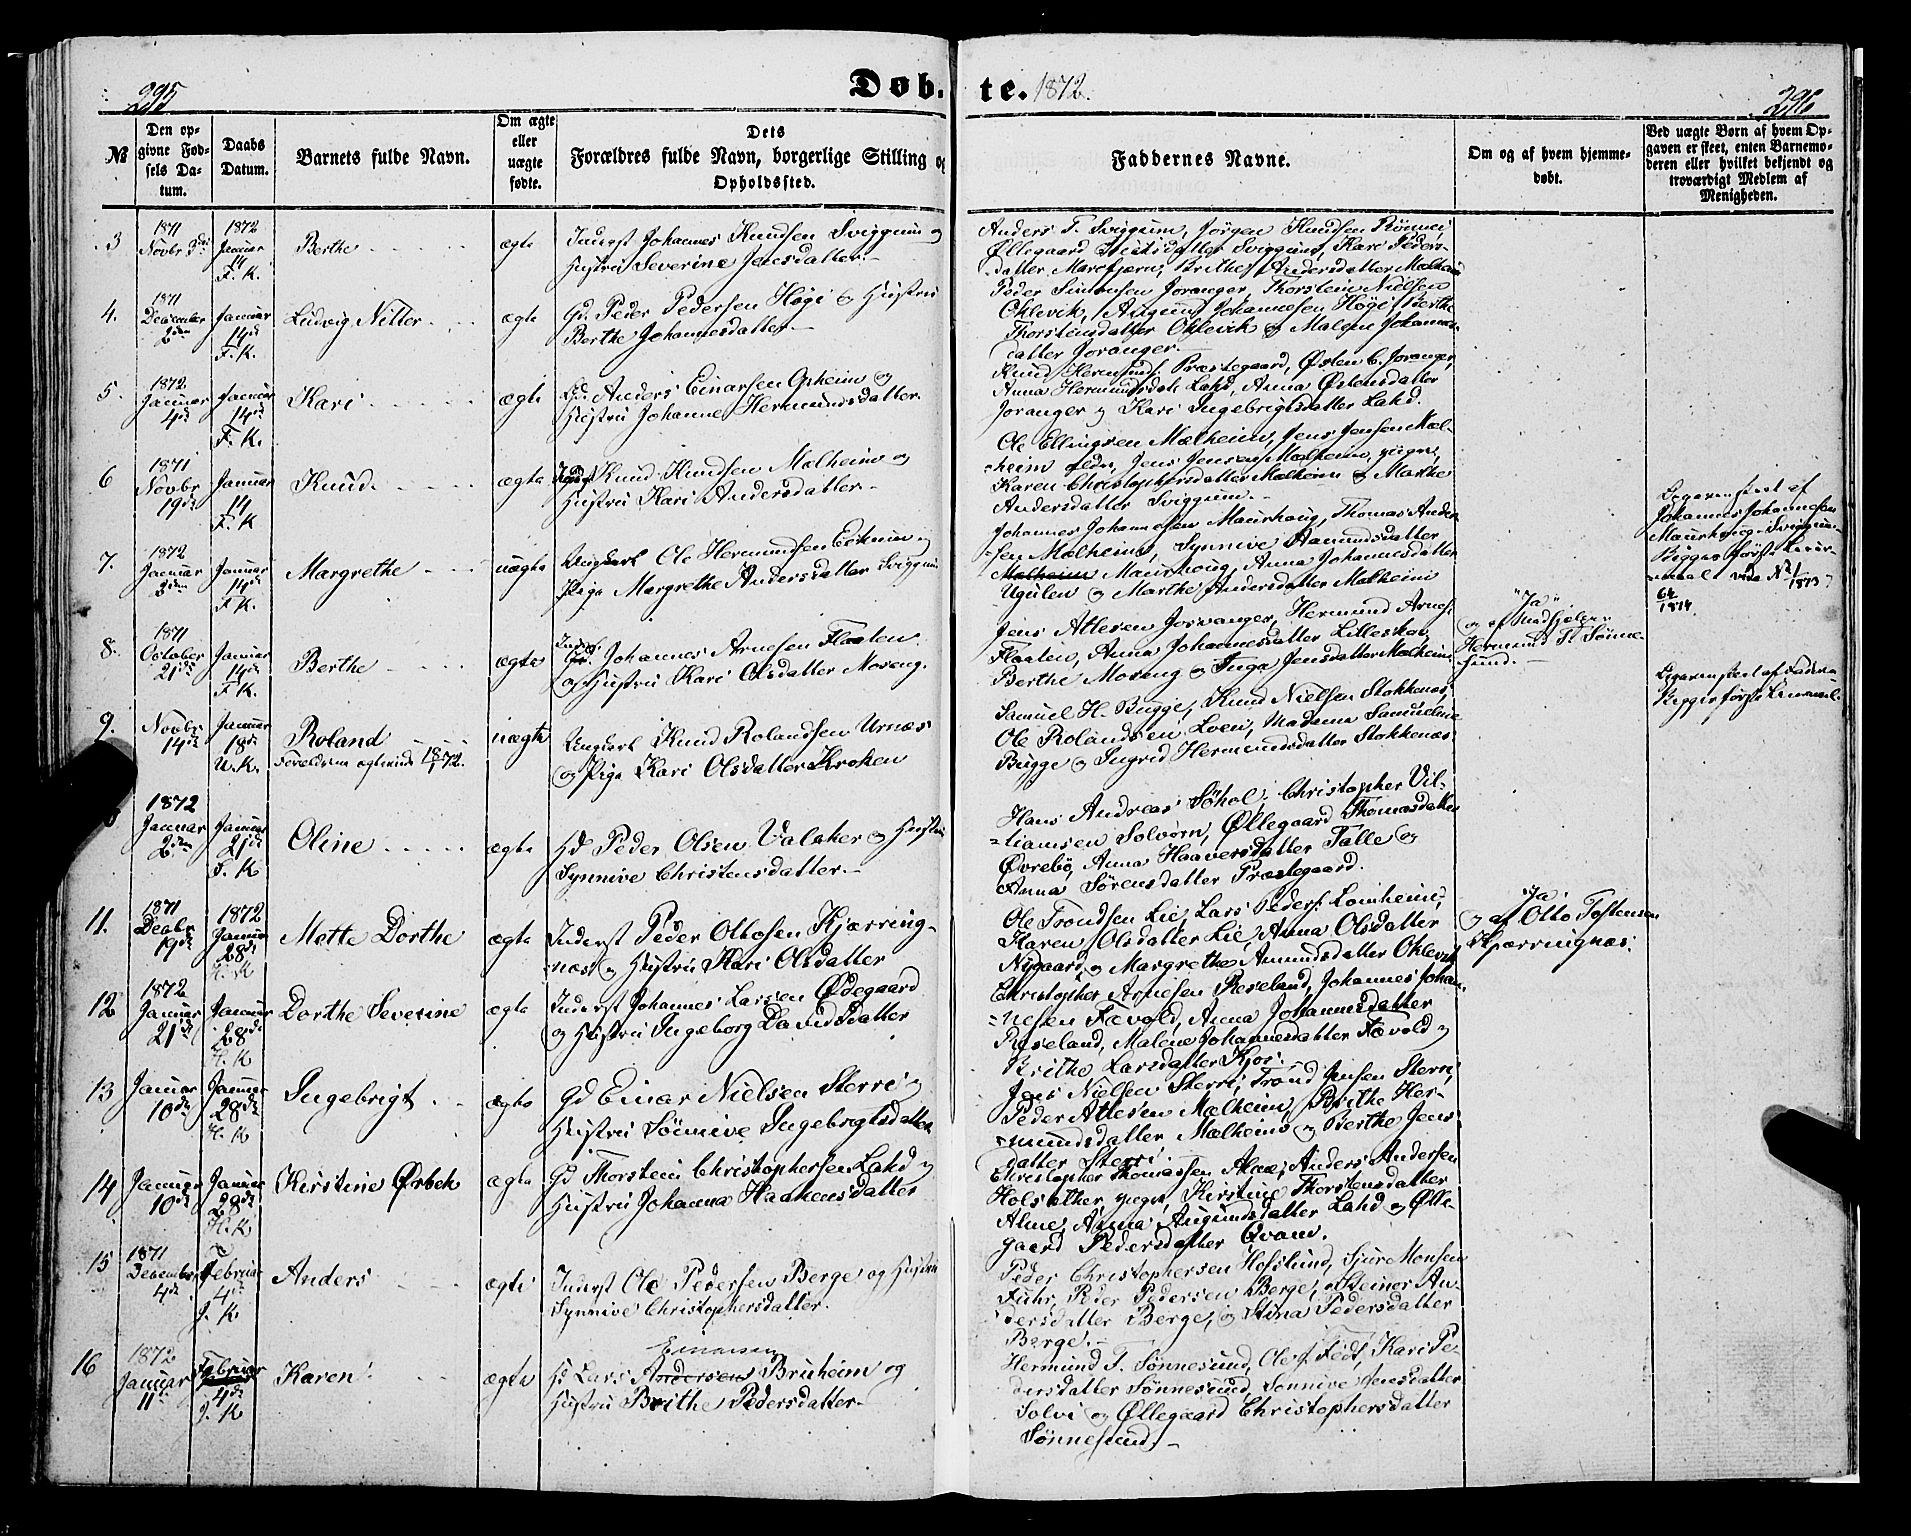 295
Døb.
te. 1872.
296
№
Den op-
givne Fød-
sels Da-
tum.
Daabs
Datum.
Barnets fulde Navn.
Om ægte
eller
uægte
fødte.
Dets
Forældres fulde Navn, borgerlige Stilling og
Opholdssted.
Faddernes Navne.
Om og af hvem hjemme-
døbt.
Ved uægte Børn af hvem Op-
gaven er skeet, enten Barnemo-
deren eller hvilket bekjendt og
troværdigt Medlem af
Menigheden.
3
1871
Novbr
1872
Januar
14
F. K.
Berthe
ægte
Inderst Johannes Knudsen Sviggum og
Hustru Severine Jensdatter
Anders T. Sviggum, Jørgen Knudsen Rønnei
Øllegaard Sviggum, Kari Peders-
datter Marifjæren, Brithe Andersdatter Mælheim
4.
1871
December
2den
Januar
14de
F. K.
Ludvig Nitter
ægte
Gd. Peder Pedersen Høgi og Hustru
Berthe Johannesdatter
Peder Simonsen Joranger, Thorstein Nielsen
Oklevik, Augund Johannesen Høgi, Berthe
Thorstensdatter Oklevik og Malene Johannes-
datter Joranger.
5.
1872
Januar
4de
Januar
14de
F. K.
Kari
ægte
Gd. Anders Einarsen Opheim og
Hustru Johanne Hermundsdatter
Knud Hermunds. Præstegaard, Østen C. Joranger,
Anna Hermundsdatr Lahd, Anna Østensdatter
Joranger og Kari Ingebrigtsdatter Lahd.
6
1871
Novbr
19de
Januar
14
F. K
Knud.
ægte
Knud Knudsen Mælheim og
Hustru Kari Andersdatter
Ole Ellingsen Mælheim, Jens Jensen Mæl-
heim ældre, Jens Jensen Mælheim, yngre,
Karen Christophersdatter Mælheim og Marthe
Andersdatter Sviggum.
7.
1872
Januar
Januar
14de
F. K.
Margrethe
uægte
Ungkarl Ole Hermundsen Eeknum og
Pige Margrethe Andersdatter Sviggum
Johannes Johannesen Maurhoug, Thomas Ander-
sen Mælheim, Synnive Aamundsdatter
Mælheim Maurhoug, Anna Johannesdatter
Ugulen og Marthe Andersdatter Mælheim
Opgaven skeet af
Johannes Johannesen
Maurhoug Sviggum
Begges første Leier-
maal vide N 1/1873
64
1814
8.
1871
October
21de
Januar
14de
F. K.
Berthe
ægte
Inderst
Johannes Arnesen Flaaten
og Hustru Kari Olsdatter Moreng.
Jens Attesen Jorvanger, Hermund Arnes.
Flaaten, Anna Johannesdatter Lilleskog,
Berthe Moreng og Inga Jensdatter Mælheim
"Ja"
og af Hermund T. Sønne-
sund.
9.
Novbr
14de
Januar
18de
U. K.
Roland
Forældrene ægteviede 18/1 72.
uægte
Ungkarl Knud Rolandsen Urnæs
og Pige Kari Olsdatter Kroken
Samuel H. Bugge, Knud Nielsen Stokkenæs,
Ole Rolandsen Loen, Madame Samueline
Bugge og Ingrid Hermundsdatter Stokkenæs
Opgaven skeet af Faderen
Begges første Leiermaal.
1872
Januar
2den
Januar
21de
F. K
Oline
ægte
Hd Peder Olsen Valaker og Hustru
Synnive Christensdatter
Hans Andreas Søhol, Christopher Vil-
liamsen Solvorn, Øllegaard Thomasdatter
Øvrebø, Anna Haaversdatter Talle og
Anna Sørensdatter Præstegaard.
11.
1871
Decbr
19de
1872
Januar
28de
H. K
Mette Dorthe
ægte
Inderst Peder Ottosen Kjærring-
næs og Hustru Kari Olsdatter
Ole Trondsen Lie, Lars Peders. Lomheim,
Karen Olsdatter Lie, Anna Olsdatter
Nygaard, og Margrethe Amundsdatter Oklevik
"Ja"
og af Otto Tostensen
Kjærringnæs.
12
1872
Januar
21de
Januar
28de
H. K
Dorthe Severine
ægte
Inderst Johannes Larsen Ødegaard
og Hustru Ingeborg Davidsdatter
Christopher Arnesen Røseland, Johannes Johan-
nesen Fævold, Anna Johannesdatter
Røseland, Malene Johannesdatter Fævold og
Brithe Larsdatter Kjos.
13
Januar
10de
Januar
28de
H. K
Ingebrigt
ægte
Gd Einar Nielsen Sterri og
Hustru Sønnive Ingebrigtsdatter
Jens Nielsen Sterri, Trond Jensen Sterri,
Peder Attesen Mælheim, Brithe Her-
mundsdatter Mælheim og Berthe Jens-
datter Sterri.
14
Januar
10de
Januar
28de
H. K
Kirstine Ørbek
ægte
Gd Thorstein Christophersen Lahd og
Hustru Johanna Haakensdatter
Christopher Thomassen Alme, Anders Andersen
Holsæther yngre, Kirstine Thorstensdatter
Alme, Anna Augundsdatter Lahd og Ølle-
gaard Pedersdatter Qvam.
15
1871
December
4de
Februar
4de
J. K
Anders
ægte
Inderst Ole Pedersen Berge og Hustru
Synnive Christophersdatter.
Peder Christophersen Hofslund, Sjur Monsen
Fuhr, Peder Pedersen Berge, Steinor An-
dersdatter Berge, og Stina Pedersdatter
Berge.
16
1872
Januar
11te
Februar
4de
J. K
Karen
ægte
Einarsen
Hd Lars Andersen Bruheim og
Hustru Brithe Pedersdatter
Hermund T. Sønnesund, Ole J. Fedt, Kari Pe-
dersdatter Sønnesund, Sønnive Jensdatter
Solvi og Øllegaard Christophersdatter
Sønnesund.